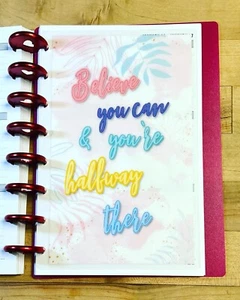 Believe
you can
& you're
halfway
there